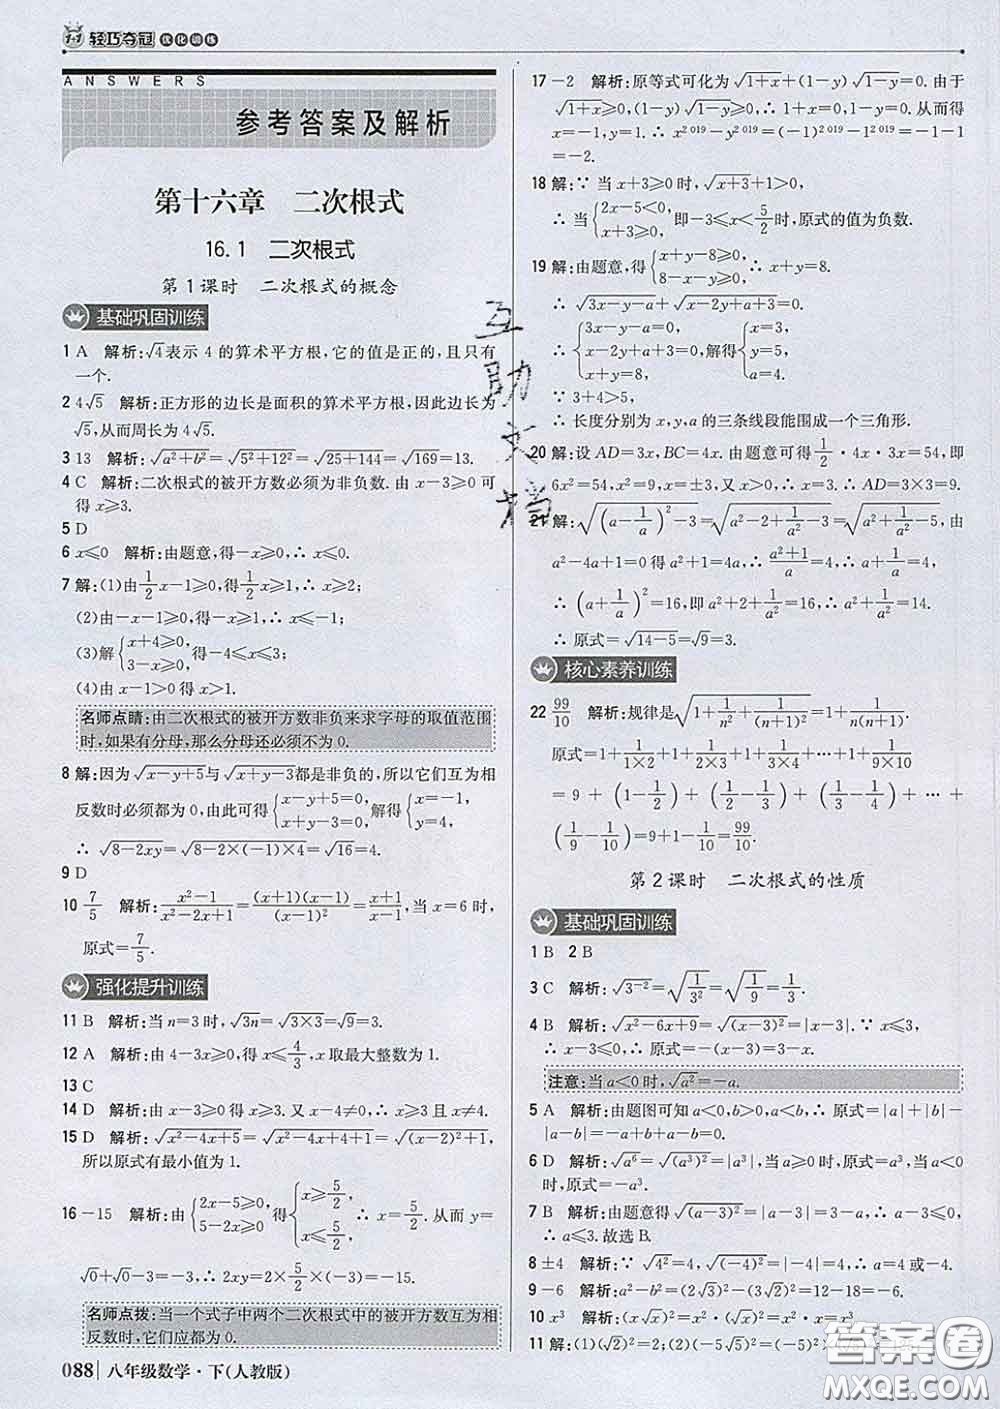 1+1 轻巧夺冠 优化训练
ANSWERS
参考答案及解析
第十六章 二次根式
16.1 二次根式
第1课时 二次根式的概念
基础巩固训练
1 A 解析:√4表示 4 的算术平方根,它的值是正的,且只有
一个.
2 4√5 解析:正方形的边长是面积的算术平方根,因此边长为
√5,从而周长为 4√5.
3 13 解析:√(a²+b²)=√(5²+12²)=√(25+144)=√169=13.
4 C 解析:二次根式的被开方数必须为非负数. 由 x-3≥0 可
得 x≥3.
5 D
6 x≤0 解析:由题意,得-x≥0,∴ x≤0.
7 解:(1)由1/2x-1≥0,得1/2x≥1,∴ x≥2;
(2)由-x-1≥0,得-x≥1,∴ x≤-1;
(3)解{x+4≥0, 3-x≥0,得-4≤x≤3;
(4)由 x-1>0 得 x>1.
名师点睛:由二次根式的被开方数非负来求字母的取值范围
时,如果有分母,那么分母还必须不为 0.
8 解:因为√(x-y+5)与√(x+y-3)都是非负的,所以它们互为相
反数时必须都为 0. 由此可得{x-y+5=0, x+y-3=0,解得{x=-1, y=4,
∴ √(8-2xy)=√(8-2×(-1)×4)=√16=4.
9 D
10 7/5 解析:(x²-1)/(x²-2x+1)=(x+1)(x-1)/(x-1)²=(x+1)/(x-1),当 x=6 时,
原式=7/5.
强化提升训练
11 B 解析:当 n=3 时,√3n=√(3×3)=√9=3.
12 A 解析:由 4-3x≥0,得 x≤4/3,x 取最大整数为 1.
13 C
14 D 解析:由 x-3≥0 得 x≥3. 又 x-4≠0,∴ x≥3 且 x≠4.
15 D 解析:√(x²-4x+5)=√(x²-4x+4+1)=√((x-2)²+1),
所以原式有最小值为 1.
16 -15 解析:由{2x-5≥0, 5-2x≥0得{x≥5/2, x≤5/2 ∴ x=5/2. 从而 y=
√0+√0-3=-3,∴ 2xy=2×5/2×(-3)=-15.
名师点拨:当一个式子中两个二次根式中的被开方数互为相
反数时,它们应都为 0.
088 八年级数学·下(人教版)
17 -2 解析:原等式可化为√(1+x)+(1-y)√(1-y)=0. 由于
√(1+x)≥0,(1-y)√(1-y)≥0,∴ 1+x=0,1-y=0. 从而得
x=-1,y=1. ∴ x²⁰¹⁹-y²⁰¹⁹=(-1)²⁰¹⁹-1²⁰¹⁹=-1-1
=-2.
18 解:∵ 当 x+3≥0 时,√(x+3)+1>0,
∴ 当{2x-5<0, x+3≥0,即-3≤x<5/2时,原式的值为负数.
19 解:由题意,得{x+y-8≥0, 8-x-y≥0,∴ x+y=8.
∴ √(3x-y-a)+√(x-2y+a+3)=0.
∴ {3x-y-a=0, x-2y+a+3=0, x+y=8,解得{x=3, y=5, a=4.
∵ 3+4>5,
∴ 长度分别为 x,y,a 的三条线段能围成一个三角形.
20 解:设 AD=3x,BC=4x. 由题意可得1/2·4x·3x=54,即
6x²=54,x²=9,x=±3,又 x>0,∴ x=3. ∴ AD=3×3=9.
21 解:√((a-1/a)²-3)=√(a²-2+1/a²-3)=√(a²+1/a²-5),由
a²-4a+1=0 得 a²+1=4a,∴ (a²+1)/a=4,∴ a+1/a=4,
∴ (a+1/a)²=16,即 a²+2+1/a²=16,∴ a²+1/a²=14.
∴ 原式=√(14-5)=√9=3.
核心素养训练
22 99/10 解析:规律是√(1+1/n²+1/(n+1)²)=1+1/n(n+1).
原式=1+1/(1×2)+1+1/(2×3)+1+1/(3×4)+…+1+1/(9×10)
=9+(1-1/2)+(1/2-1/3)+(1/3-1/4)+…+
(1/9-1/10)=9+1-1/10=99/10.
第2课时 二次根式的性质
基础巩固训练
1 B 2 B
3 C 解析:√(3⁻²)=√(1/3²)=√(1/9)=1/3.
4 B 解析:√(x²-6x+9)=√((x-3)²)=|x-3|. ∵ x≤3,
∴ x-3≤0,∴ 原式=-(x-3)=3-x.
注意:当 a<0 时,√a²=-a.
5 A 解析:由题图可知 a<0,b>0,a<b,∴ 原式=|a|+|b|-
|a-b|=-a+b+a-b=0.
6 D 解析:√a⁶=√((a³)²)=|a³|,当 a≥0 时,原式=a³,当 a<0
时,原式=-a³.
7 B 解析:由题意得√((a-3)²)=|a-3|=3-a,∴ a-3≤0,
∴ a≤3. 故选 B.
8 ±4 解析:∵ √4²=4,√((-4)²)=|-4|=4,∴ a=4 或-4.
9 -6 解析:a²-b²=(2√3)²-(3√2)²=12-18=-6.
10 x³ 解析:x²·(√x)²=x²·x=x³.
11 解:(1)(√2)²=2.(2)(-5√5)²=(-5)²×
互助文档
答案圈
MXQE.COM